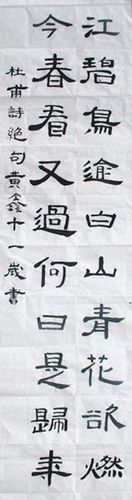 江碧鳥逾白山青花欲燃
今春看又過何日是歸年
杜甫詩絕句黃鑫十一歲書